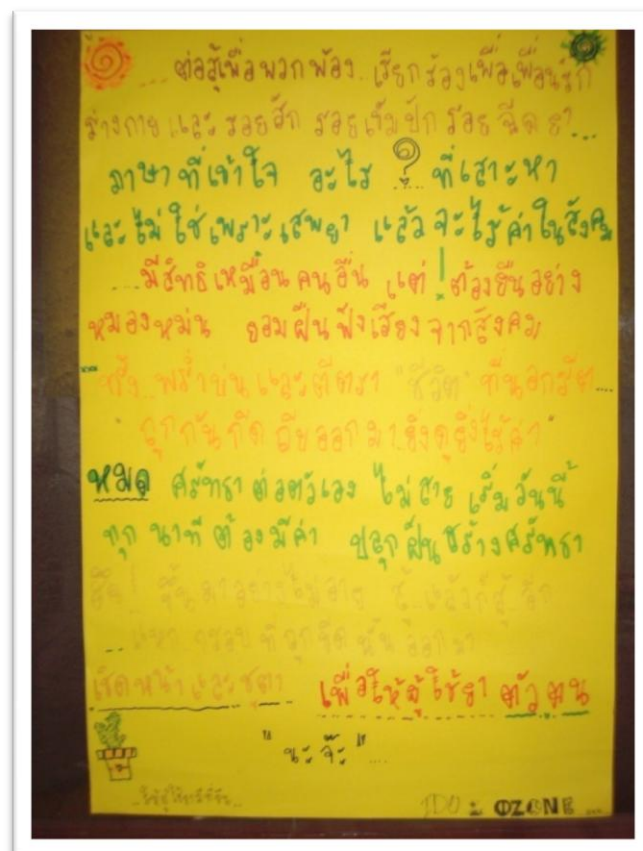 ...ต่อสู้เพื่อพวกพ้อง..เรียกร้องเพื่อเพื่อนรัก
ร่างกาย และ รอยสัก รอยเข็มปัก รอยฉีดยา...
ภาษาที่เข้าใจ อะไร ? ที่เสาะหา
และ ไม่ใช่เพราะเสพยา แล้วจะไร้ค่าในสังคม
...มีสิทธิเหมือนคนอื่น แต่ ! ต้องยืนอย่าง
หมองหม่น ยอมฝืนฟังเสียงจากสังคม
...ทั้ง..พร่ำบ่นและตีตรา "ชีวิต" ที่นอกรีต...
ถูกกันกีด ยิ่งดูยิ่งไร้ค่า"
หมด ศรัทธาต่อตัวเอง ไม่สาย เริ่มวันนี้
ทุก นาทีต้องมีค่า ปลุกฝันสร้างศรัทธา
ขึ้นมาอย่างไม่อาย
กรอบที่ถูกขีด นั้นออกมา
เชิดหน้าและชูตา เพื่อให้ผู้ใช้ยา มีตัวตน
"นะจ๊ะ"....
IDU : OZONE...